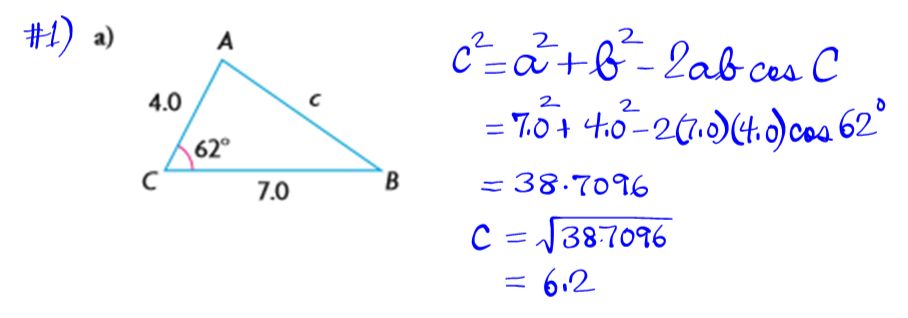 #1) a)
A
4.0
c
62°
C
7.0
B
c² = a² + b² - 2ab cos C
= 7.0² + 4.0² - 2(7.0)(4.0) cos 62°
= 38.7096
c = √38.7096
= 6.2